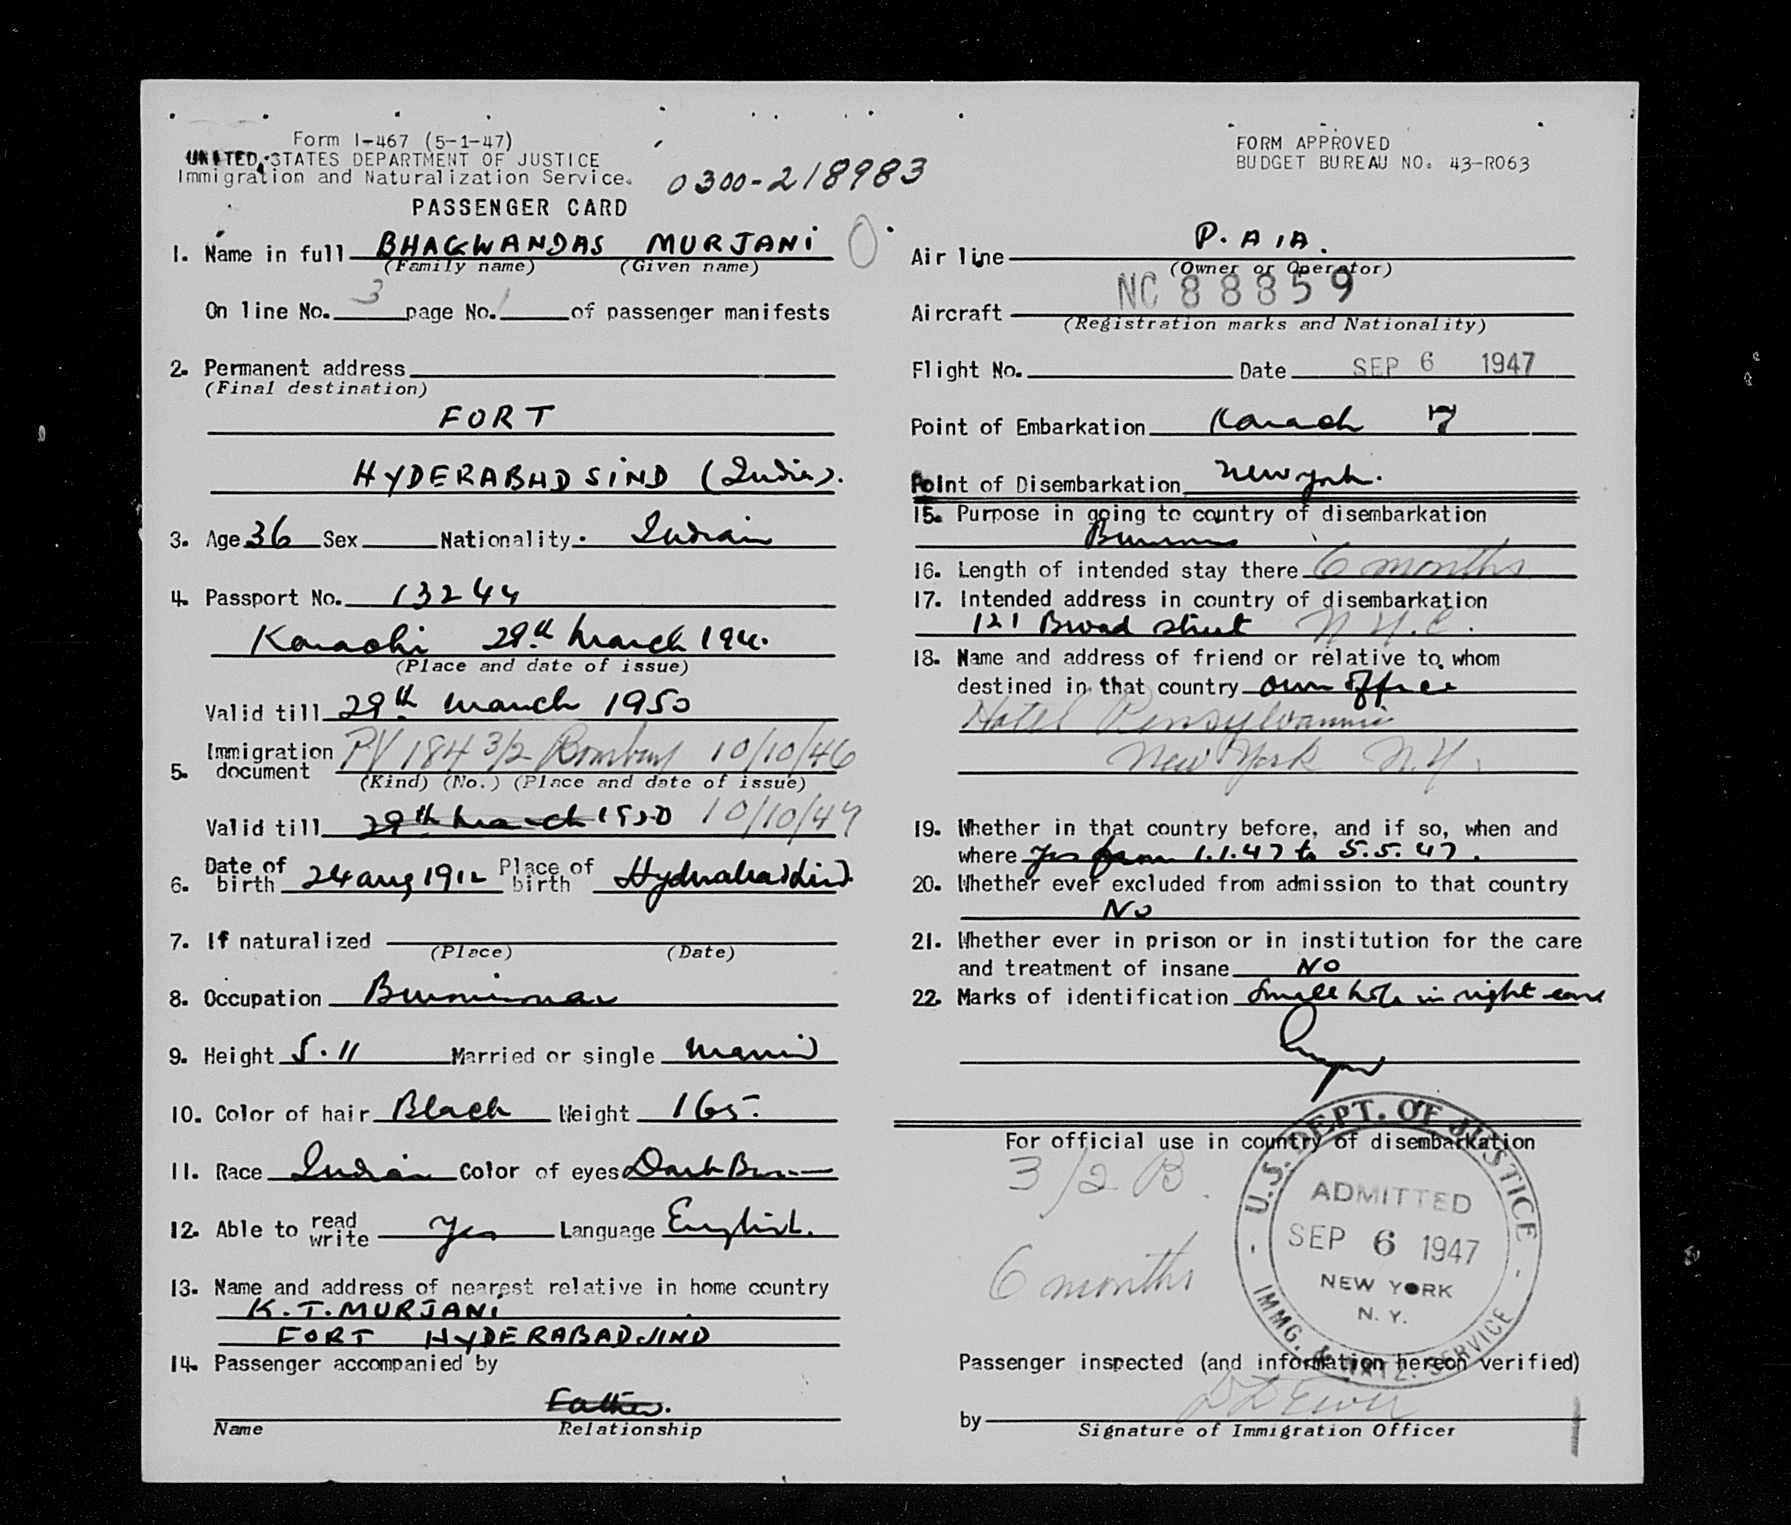 Form I-467 (5-1-47)
UNITED STATES DEPARTMENT OF JUSTICE
Immigration and Naturalization Service.
0300-218983
PASSENGER CARD
1. Name in full BHAGWANDAS MURJANI
(Family name) (Given name)
On line No. 3 page No. 1 of passenger manifests
2. Permanent address
(Final destination)
FORT
HYDERABAD SIND (India).
3. Age 36 Sex Nationality. Indian
4. Passport No. 13244
Karachi 29th March 194
(Place and date of issue)
Valid till 29th March 1950
5. Immigration document PV 184 3/2 Bombay 10/10/46
(Kind) (No.) (Place and date of issue)
Valid till 29th March 1950 10/10/47
6. Date of birth 24 aug 1912 Place of birth Hyderabad Sind
7. If naturalized
(Place) (Date)
8. Occupation Businessman
9. Height 5.11 Married or single Married
10. Color of hair Black Weight 165.
11. Race Indian Color of eyes Dark Brown
12. Able to read write Yes Language English.
13. Name and address of nearest relative in home country
K.T. MURJANI
FORT HYDERABAD SIND
14. Passenger accompanied by
Father.
Name Relationship
FORM APPROVED
BUDGET BUREAU NO. 43-R063
Air line P.A.A.
(Owner or Operator)
Aircraft NC 88859
(Registration marks and Nationality)
Flight No. Date SEP 6 1947
Point of Embarkation Karachi
Point of Disembarkation New York.
15. Purpose in going to country of disembarkation
Business
16. Length of intended stay there 6 months
17. Intended address in country of disembarkation
121 Broad Street N.Y.C.
18. Name and address of friend or relative to whom
destined in that country own office
Hotel Pensylvannia
New York N.Y.
19. Whether in that country before, and if so, when and
where Yes from 1.1.47 to 5.5.47.
20. Whether ever excluded from admission to that country
No
21. Whether ever in prison or in institution for the care
and treatment of insane NO
22. Marks of identification Small hole in right ear
For official use in country of disembarkation
3/2 B.
6 months
U.S. DEPT. OF JUSTICE
ADMITTED
SEP 6 1947
NEW YORK
N. Y.
IMMG. & NATZ. SERVICE
Passenger inspected (and information hereon verified)
by
Signature of Immigration Officer